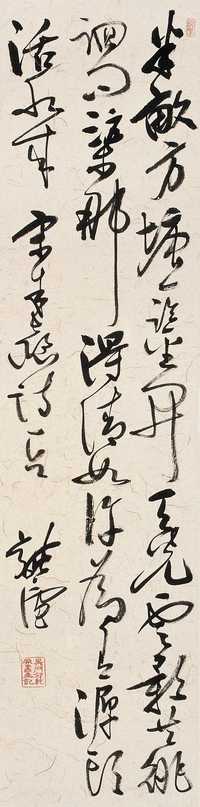 半畝方塘一鑑開天光雲影共徘
徊問渠那得清如許為有源頭
活水來 宋朱熹詩一首